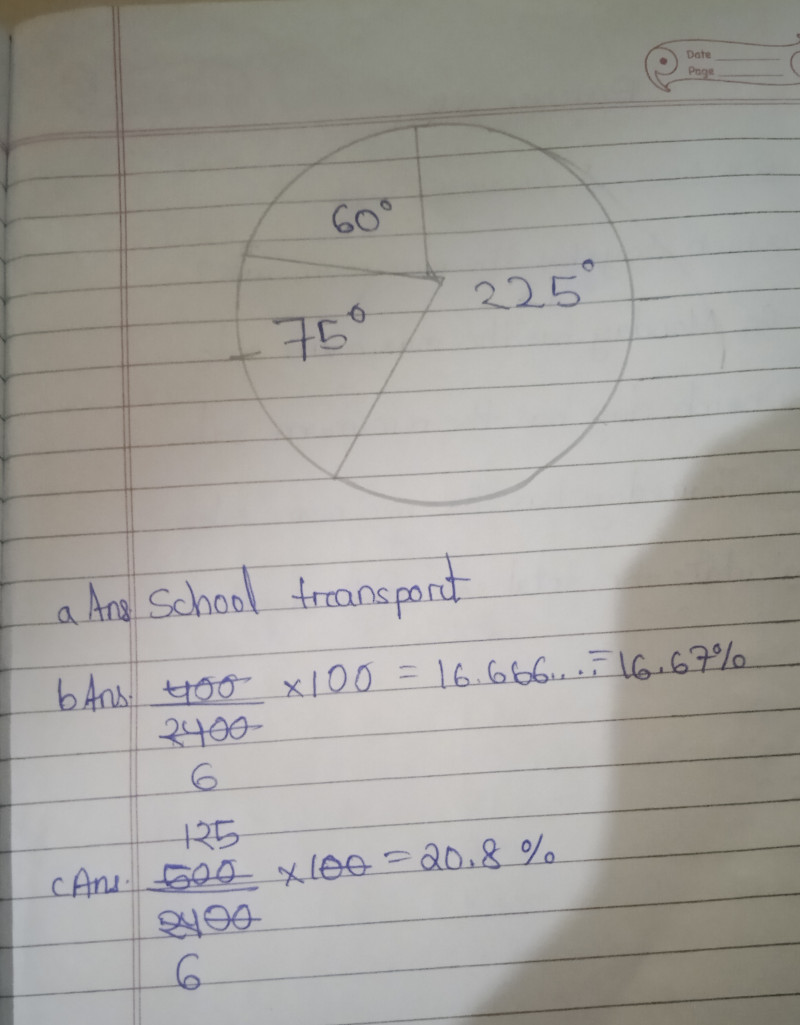 Date
Page
60°
225°
75°
a Ans School transport
b Ans. 400/2400 ×100 = 16.666... = 16.67%
6
125
c Ans. 500/2400 ×100 = 20.8 %
6